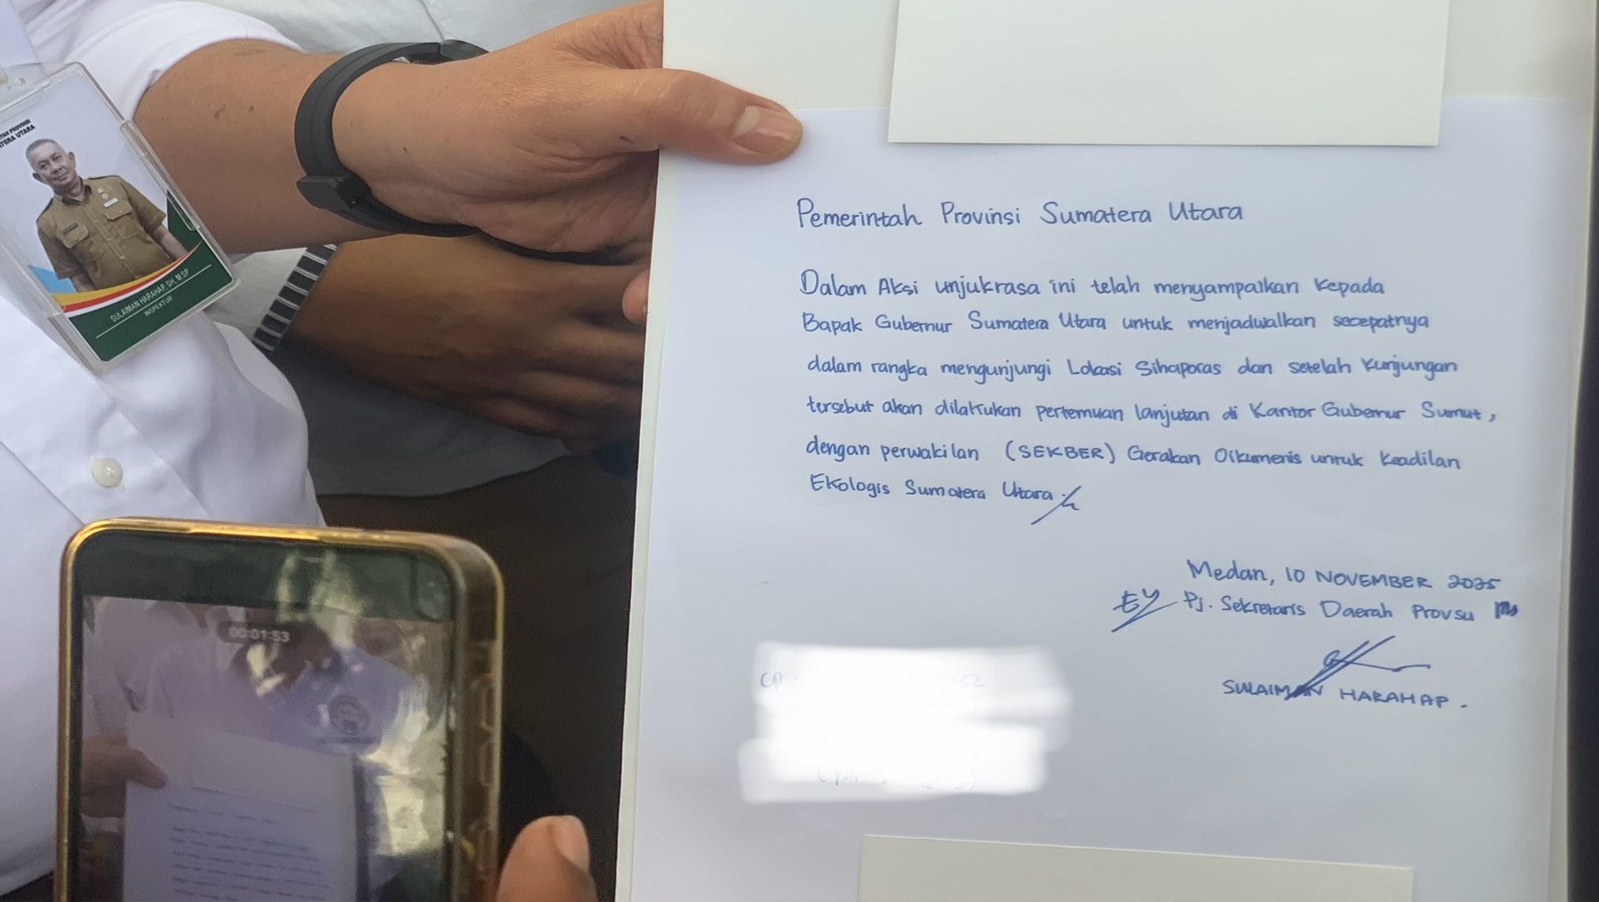 TERA UTARA
SULAIMAN HARAHAP, SH, M.SP
INSPEKTUR
Pemerintah Provinsi Sumatera Utara
Dalam Aksi unjukrasa ini telah menyampaikan kepada
Bapak Gubernur Sumatera Utara untuk menjadwalkan secepatnya
dalam rangka mengunjungi Lokasi Sihaporas dan setelah Kunjungan
tersebut akan dilakukan pertemuan lanjutan di Kantor Gubernur Sumut,
dengan perwakilan (SEKBER) Gerakan Oikumenis untuk Keadilan
Ekologis Sumatera Utara
Medan, 10 NOVEMBER 2025
Pj. Sekretaris Daerah Provsu
SULAIMAN HARAHAP.
00:01:53